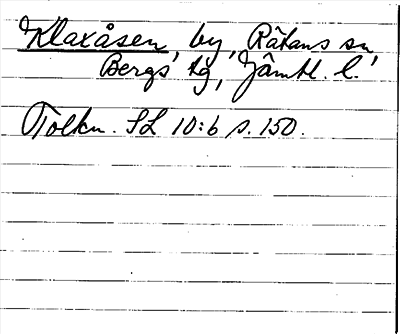 Klaxåsen, by, Rätans sn,
Bergs tg, Jämtl. l.
Tolkn. SL 10:6 s. 150.